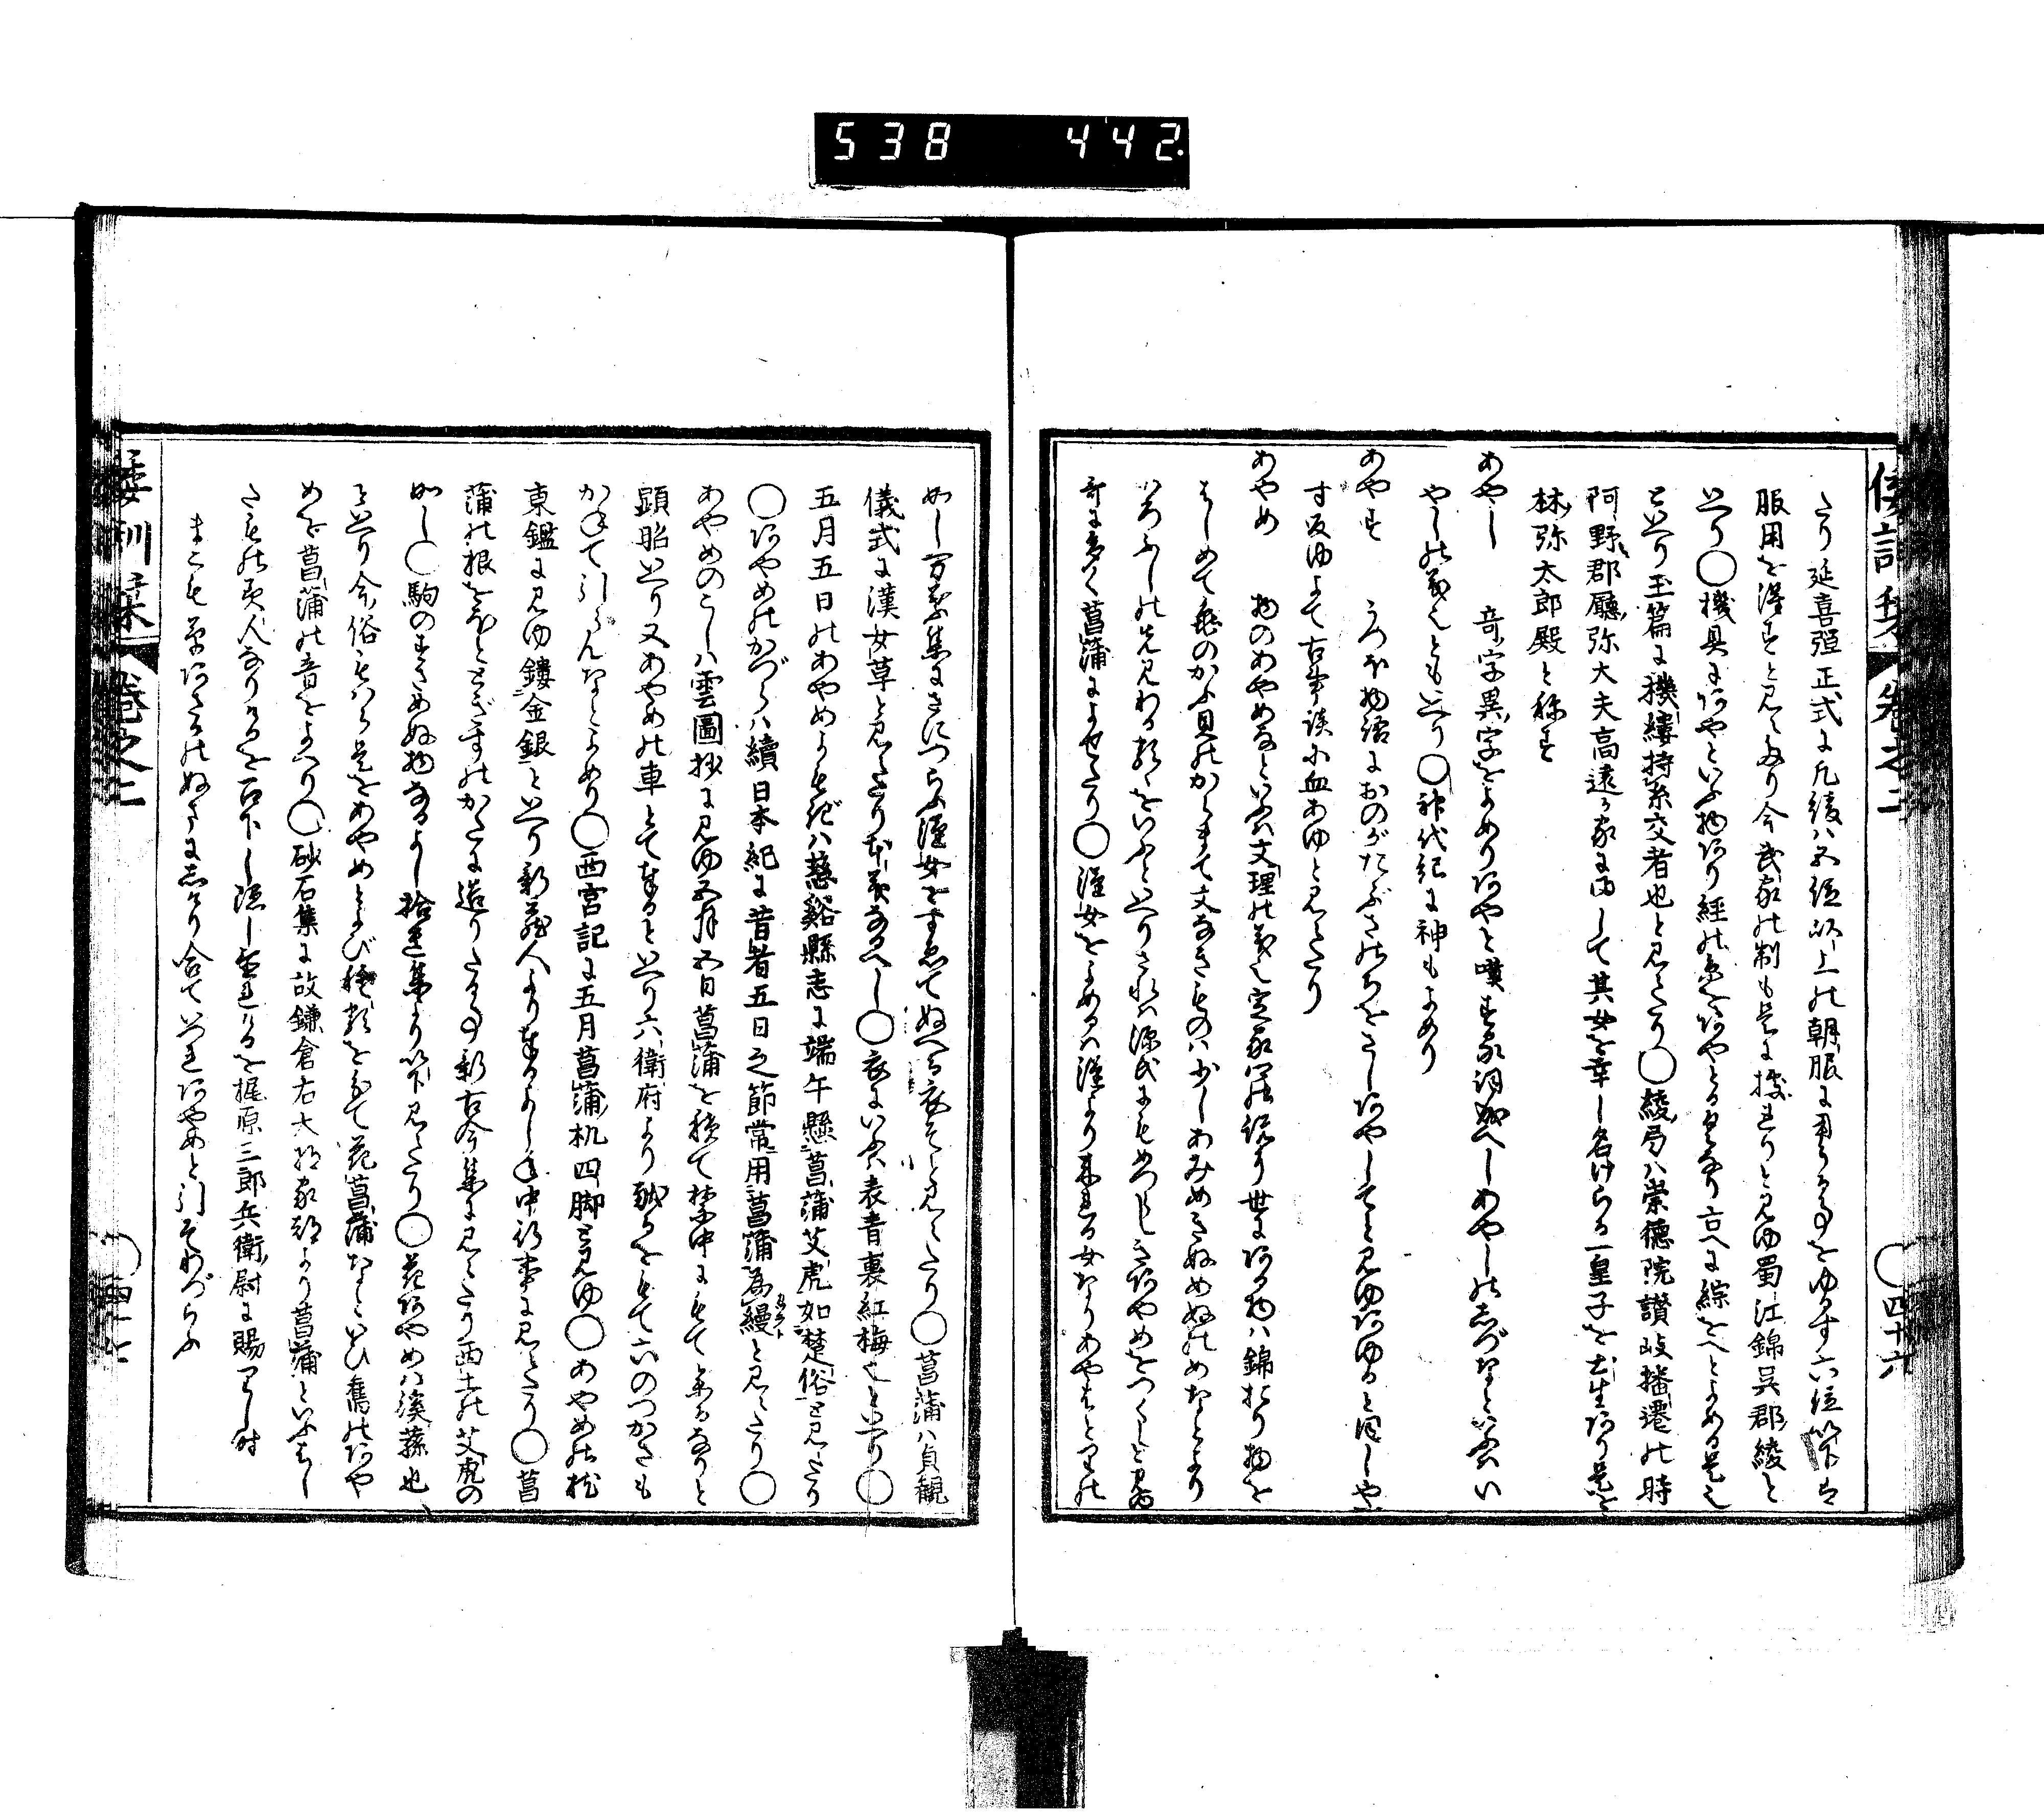 538 442.
倭訓栞 巻之二 ○四十六
たり延喜弾正式に凡綾ハ五位以上の朝服に用うる事をゆるす六位以下は
服用を得すと見えたり今武家の制も是に据れりと見ゆ蜀江錦呉郡綾と
いへり○機具にあやといふ物あり経の糸をあやとるなり古へに綜をへとよめる是也
といへり玉篇に機縷持糸交者也と見えたり○綾局ハ崇徳院讃岐播遷の時
阿野郡廳弥大夫高遠か家に して其女を幸し名けらる一皇子を出生あり是を
林弥太郎殿と称す
あやし 奇字異字をよめりあやと嘆する詞成へしあやしのしづなといふハい
やしの義也ともいへり○神代紀に神もよめり
あやす うつほ物語におのがたぶさのちをさしあやしてと見ゆあゆると同しや
す反ゆよて古事談に血あゆと見えたり
あやめ 物のあやめなといふハ文理の義也定家卿の説り世にある物ハ錦おり物を
はしめて魚のかふ貝のからまて文なきものハ少しあみめきぬめぬのめなとより
いろふしの先見わる程をいふといへりされハ源氏にもめつらしきあやめをつくしと見ゆ
哥に多く菖蒲によせたり○漢女をよめるハ漢より来れる女なりあやはとりの
如し万葉集にさにつらふ漢女をすゑてぬへる衣そと見えたり○菖蒲ハ貞観
儀式に漢女草と見えたり本義なるへし○衣にいふハ表青裏紅梅也といへり○
五月五日のあやめよもぎハ慈谿縣志に端午懸菖蒲艾虎如楚俗と見えたり
○あやめのかづらハ續日本紀に昔者五日之節常用菖蒲為縵と見えたり○
あやめのこしハ雲圖抄に見ゆ五月五日菖蒲を積て禁中にもて参るなりと
顕昭いへり又あやめの車とて有るといへり六衛府より献るをもて六のつかさも
かねて引らんなとよめり○西宮記に五月菖蒲机四脚と見ゆ○あやめの枕
東鑑に見ゆ鏤金銀といへり新蔵人より奉るよし年中行事に見えたり○菖
蒲の根をほととぎすのかたに造りたる事新古今集に見えたり西土の艾虎の
如し○駒のすさめぬ物なるよし拾遺集より以下見えたり○花あやめハ溪蓀也
といへり今俗もハら是をあやめとよび種類を分て花菖蒲なといひ舊のあや
めを菖蒲の音をよへり○砂石集に故鎌倉右大将家 より菖蒲といふはし
たもの美人なりけるを召下し隠し置れけるを梶原三郎兵衛尉に賜りし時
まこも草あさかのぬまにしけり合ていつれあやめと引そわづらふ
倭訓栞 巻之二 ○四十七